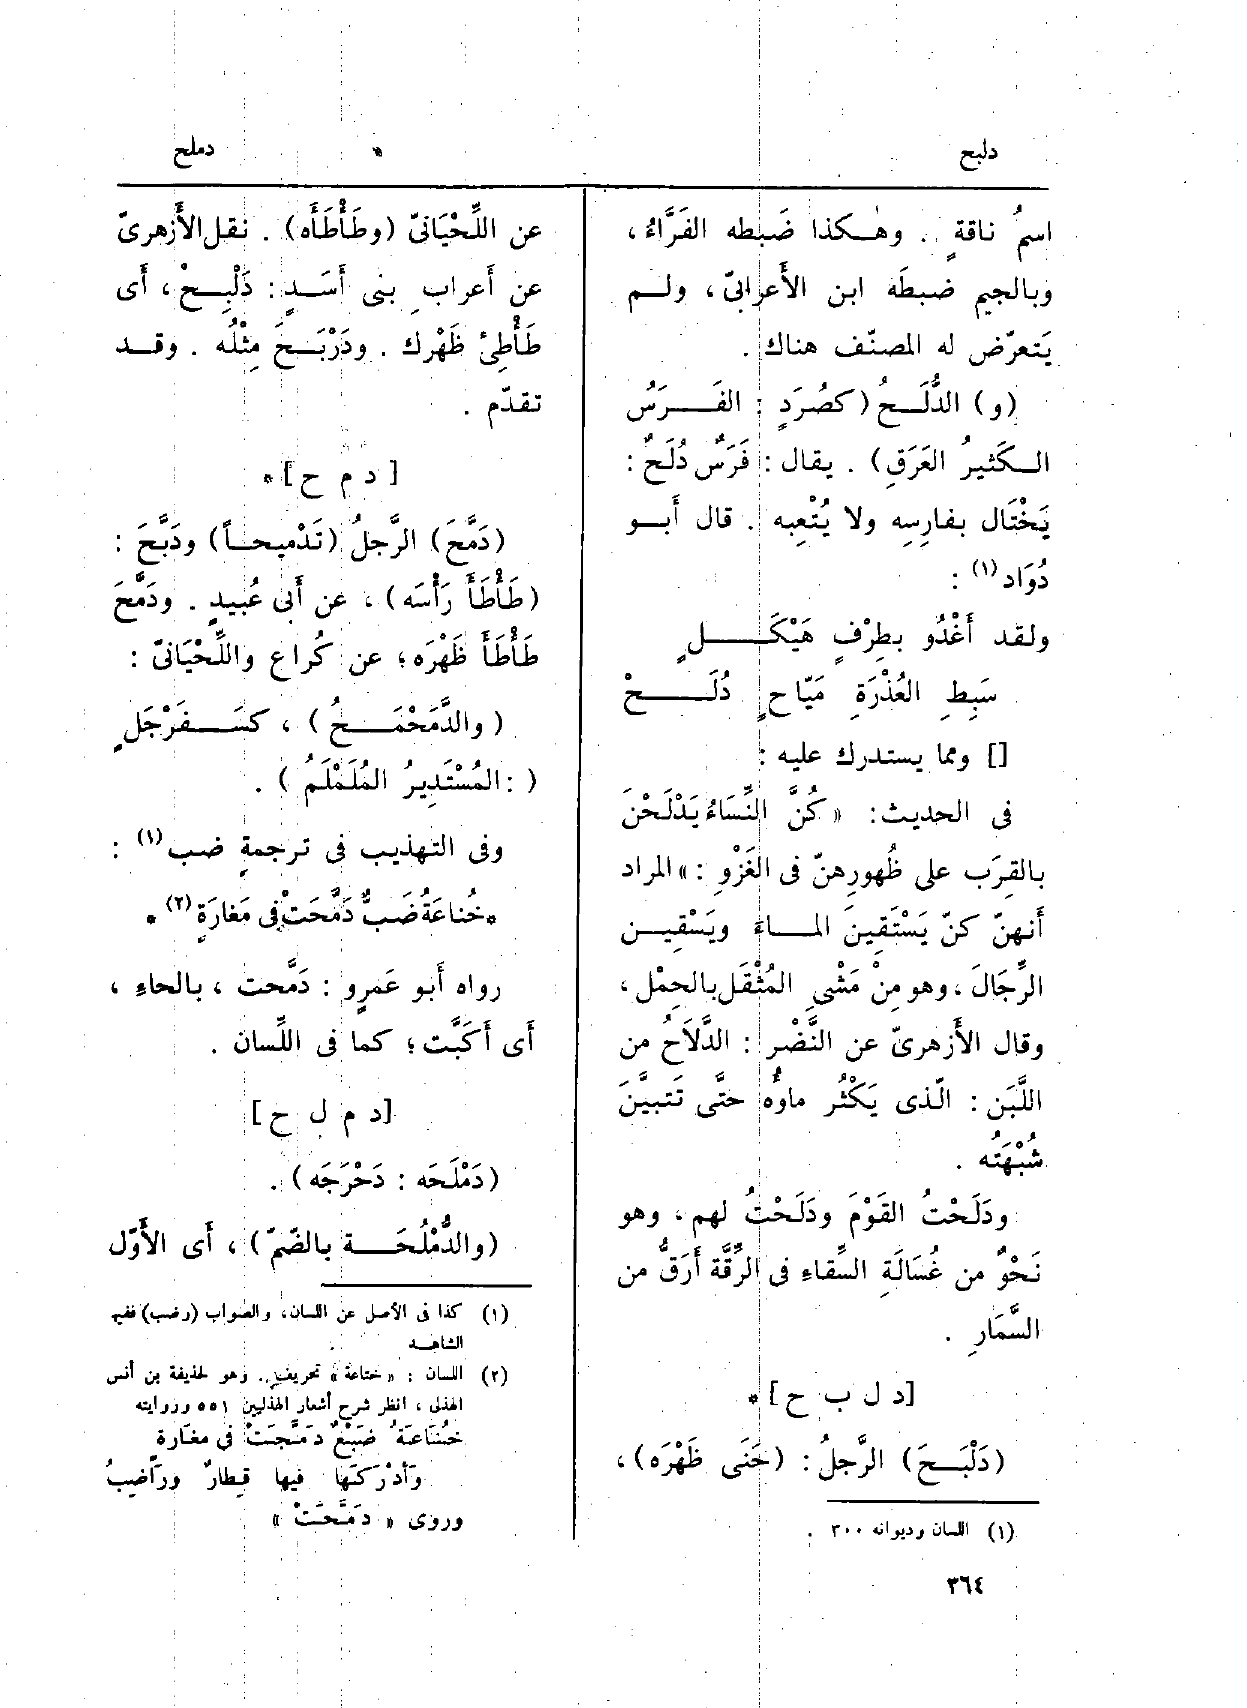 دلبح
دملح
اسمُ ناقةٍ . وهٰكذا ضَبطه الفَرَّاءُ ،
وبالجيم ضبطَه ابن الأَعرابىّ ، ولم
يَتعرّض له المصنّف هناك .
(و) الدُّلَحُ (كصُرَدٍ : الفَرَسُ
الكَثيرُ العَرَقِ) . يقال : فَرَسٌ دُلَحٌ :
يَخْتَال بفارِسِه ولا يُتْعِبه . قال أَبو
دُوَاد (١) :
ولقد أَغْدُو بطِرْفٍ هَيْكَلٍ
سَبِطِ العُذْرَةِ مَيّاحٍ دُلَحْ
[] ومما يستدرك عليه :
فى الحديث : « كُنَّ النِّسَاءُ يَدْلَحْنَ
بالقِرَب على ظُهورِهنّ فى الغَزْوِ : » المراد
أَنهنّ كنّ يَسْتَقِينَ الماءَ ويَسْقِين
الرِّجَالَ ، وهو مِنْ مَشْىِ المُثْقَل بالحِمْل ،
وقال الأَزهرىّ عن النَّضْر : الدَّلاَحُ من
اللَّبَن : الّذى يَكْثُر ماؤُه حتَّى تَتبيَّنَ
شُبْهَتُه .
ودَلَحْتُ القَوْمَ ودَلَحْتُ لهم ، وهو
نَحْوٌ من غُسَالَةِ السِّقاء فى الرِّقَّة أَرَقُّ من
السَّمَارِ .
[د ل ب ح] *
(دَلْبَحَ) الرَّجلُ : (حَنَى ظَهْرَه) ،
(١) اللسان وديوانه ٣٠٠ .
عن اللِّحْيَانىّ (وطَأْطَأَه) . نقل الأَزهرىّ
عن أَعرابِ بنى أَسَدٍ : دَلْبِحْ ، أَى
طَأْطِئْ ظَهْرك . ودَرْبَحَ مِثْلُه . وقد
تقدّم .
[د م ح] *
(دَمَّحَ) الرَّجلُ (تَدْمِيحاً) ودَبَّحَ :
(طَأْطَأَ رَأْسَه) ، عن أَبى عُبيدٍ . ودَمَّحَ
طَأْطَأَ ظَهْرَه ؛ عن كُراع واللِّحْيَانىّ :
(والدَّمَحْمَحُ) ، كسَفَرْجَلٍ
( : المُسْتَدِيرُ المُلَمْلَمُ ) .
وفى التهذيب فى ترجمةِ ضب (١) :
* خُناعَةُ ضَبٌّ دَمَّحَتْ فى مَغارَةٍ (٢) *
رواه أَبو عَمرٍو : دَمَّحت ، بالحاءِ ،
أَى أَكَبَّت ؛ كما فى اللِّسان .
[د م ل ح]
(دَمْلَحَه : دَحْرَجَه) .
(والدُّمْلُحَة بالضّمّ) ، أَى الأَوّل
(١) كذا فى الأصل عن اللسان، والصواب (رضب) ففيها
الشاهد
(٢) اللسان : « ختاعة » تحريف . وهو لحذيفة بن أنس
الهذلى ، انظر شرح أشعار الهذليين ٥٥١ وروايته
خُنَاعَةُ ضَبْعٌ دَمَّجَتْ فى مغَارَةٍ
وَأدْرَكَهَا فيها قِطارٌ ورَاضِبُ
وروى « دَمَّحَتْ »
٣٦٤